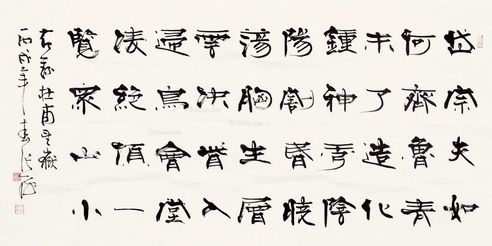 岱宗夫如
何齊魯青
未了造化
鍾神秀陰
陽割昏曉
蕩胸生層
雲決眥入
歸鳥會當
凌絕頂一
覽眾山小
右錄杜甫望嶽
丙戌年春